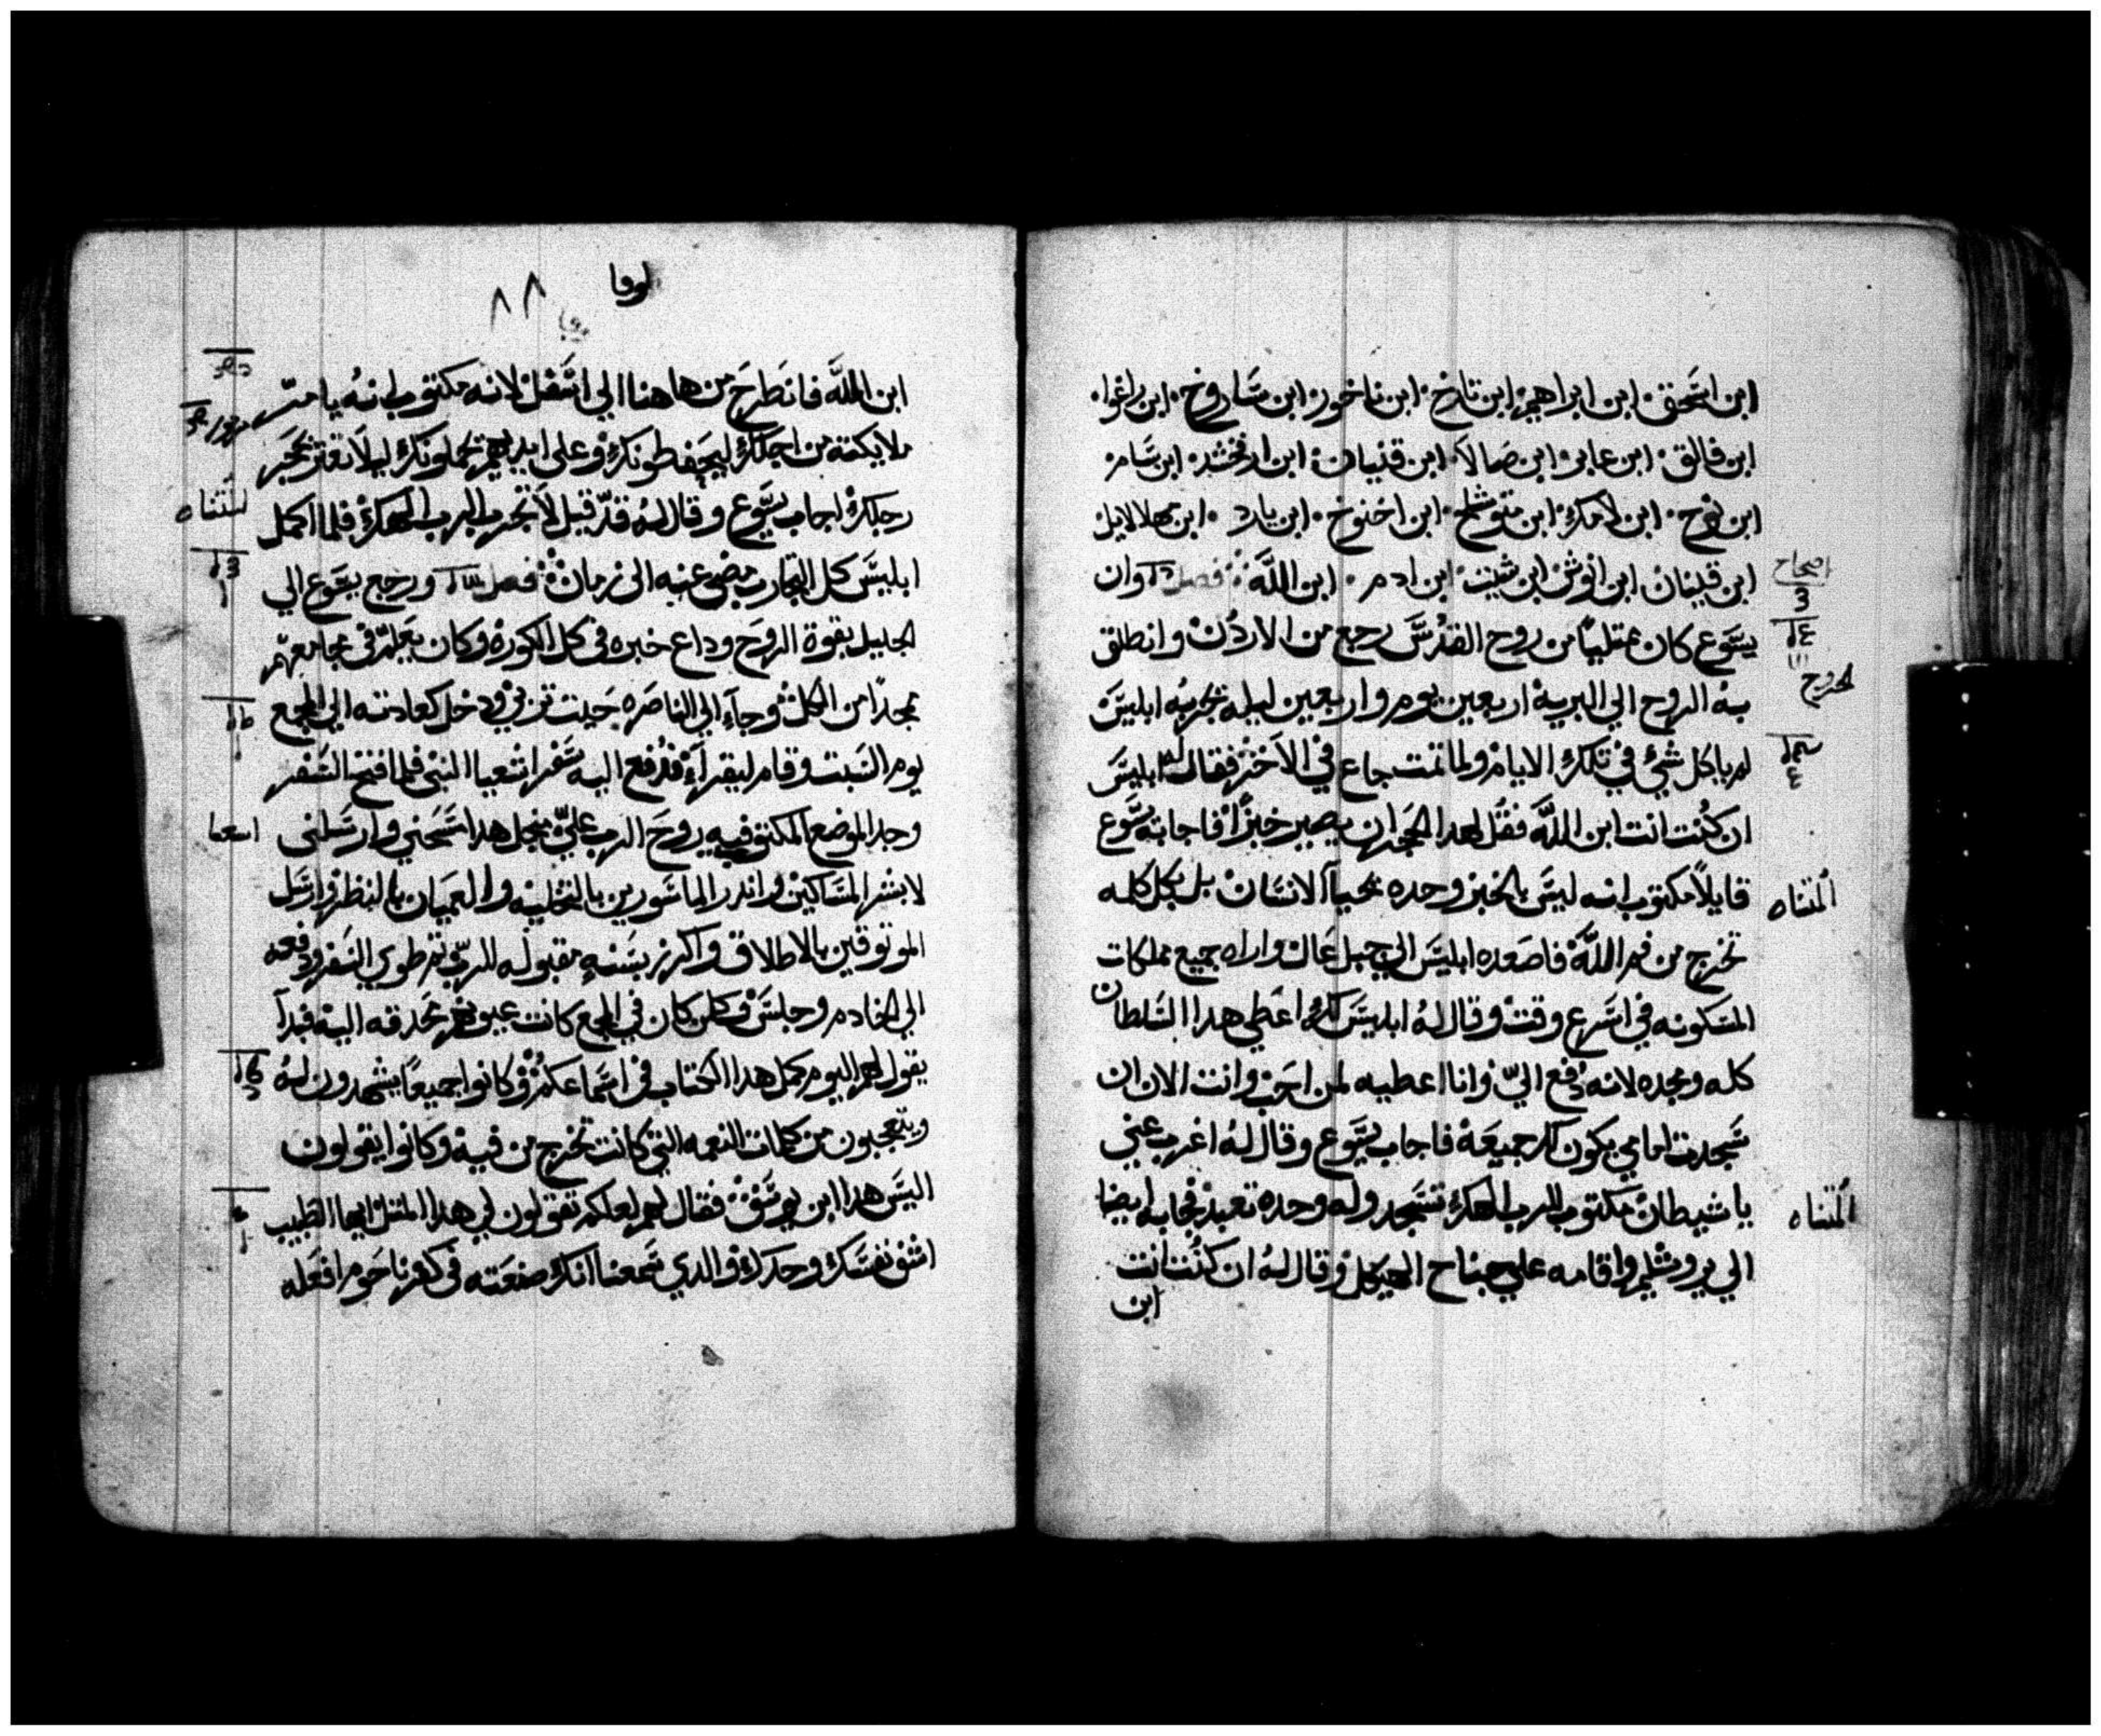 ابن اسحق ابن ابراهيم ابن تارخ ابن ناخور ابن ساروخ ابن راغوا
ابن فالق ابن عابر ابن صالا ابن قنيان ابن ارفخشد ابن سام
ابن نوح ابن لامك ابن متوشلح ابن اخنوخ ابن يارد ابن مهلالايل
ابن قينان ابن انوش ابن شيت ابن ادم ابن الله فصل وان
اصحاح
يسوع كان ممتلياً من روح القدس رجع من الاردن وانطلق
به الروح الي البرية اربعين يوم واربعين ليله تجربه ابليس
لم ياكل شيء في تلك الايام ولما تمت جاع في الاخر فقال له ابليس
ان كنت انت ابن الله فقل لهدا الحجر ان يصير خبزاً فاجابه يسوع
قايلاً مكتوب انه ليس بالخبز وحده يحيا الانسان بل بكل كله
المتناه
تخرج من فم الله فاصعده ابليس الي جبل عال واراه جميع مملكات
المسكونه في اسرع وقت وقال له ابليس لك اعطي هدا السلطان
كله ومجده لانه دُفع اليّ وانا اعطيه لمن احب وانت الان ان
سجدت امامي يكون لك جميعه فاجاب يسوع وقال له اغرب عني
يا شيطان مكتوب للرب الهك تسجد وله وحده تعبد فجابه ايضا
المتناه
الي يروشليم واقامه علي جناح الهيكل وقال له ان كنت انت
ابن
لوقا
٨٨
ابن الله فانطرح من هاهنا الي اسفل لانه مكتوب انه يامر
ملايكته من اجلك ليحفطونك وعلى ايديهم يحملونك ليلا تعثر بحجر
رجلك اجاب يسوع وقال له قد قيل لا تجرب الرب الهك فلما اكمل
ابليس كل التجارب مضى عنه الى زمان فصل ورجع يسوع الي
الجليل بقوة الروح وداع خبره في كل الكوره وكان يعلم في مجامعهم
ممجداً من الكل وجاء الي الناصره حيت تربي ودخل كعادته الي المجمع
يوم السبت وقام ليقراء فدُفع اليه سفر اشعيا النبي فلما فتح السفر
وجد الموضع المكتوب فيه روح الرب عليّ من اجل هدا مسحني وارسلني
اشعيا
لابشر المساكين واندر الماسورين بالتخليه والعميان بالنظر وارسل
الموتوقين بالاطلاق واكرز بسنه مقبوله للرب تم طوي السفر ودفعه
الي الخادم وجلس وكل من كان في المجمع كانت عيونهم محدقه اليه فبدأ
يقول لهم اليوم كمل هدا الكتاب في اسماعكم وكانوا جميعاً يشهدون له
ويتعجبون من كلمات النعمه التي كانت تخرج من فيه وكانوا يقولون
اليس هدا ابن يوسف فقال لهم لعلكم تقولون لي هدا المتل ايها الطبيب
اشف نفسك وحدك والدي سمعنا انك صنعته في كفرناحوم افعله